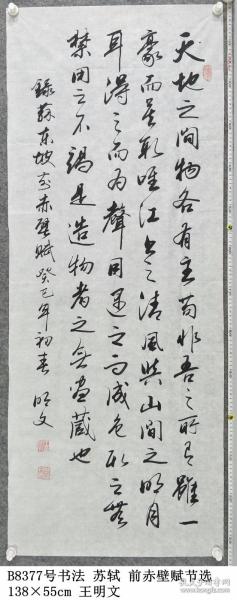 天地之间物各有主苟非吾之所有虽一
豪而莫取唯江上之清風與山間之明月
耳得之而为聲目遇之而成色取之無
禁用之不竭是造物者之無盡藏也
錄蘇东坡前赤壁赋癸巳年初春 明文
B8377号书法 苏轼 前赤壁赋节选
138×55cm 王明文